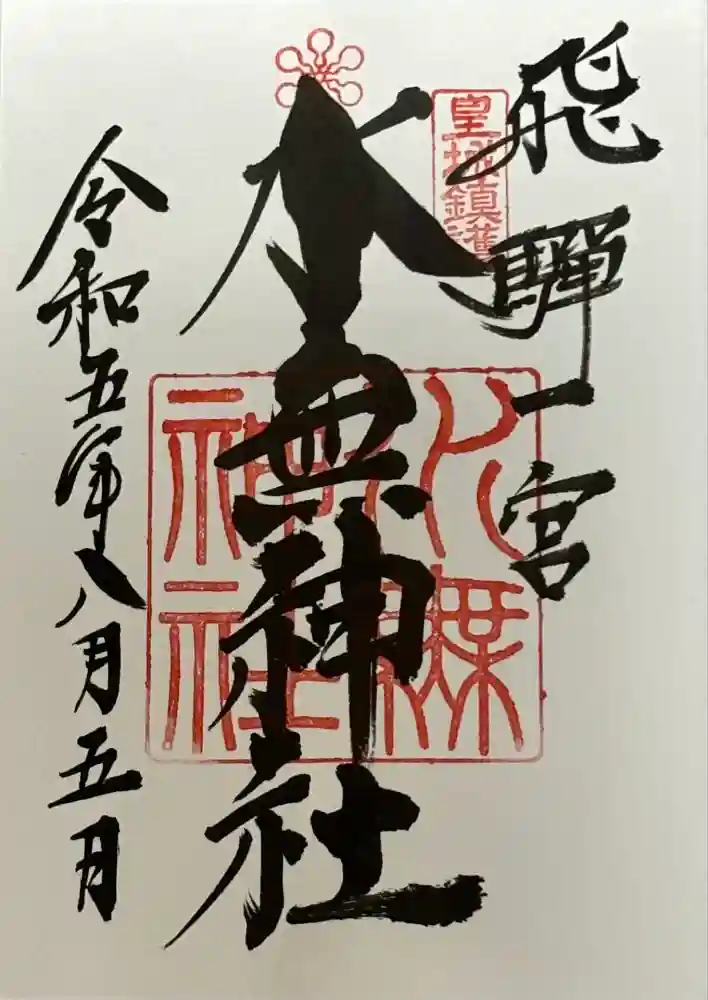 飛驒一宮
皇城鎮護
水無神社
水無
神社
令和五年八月五月